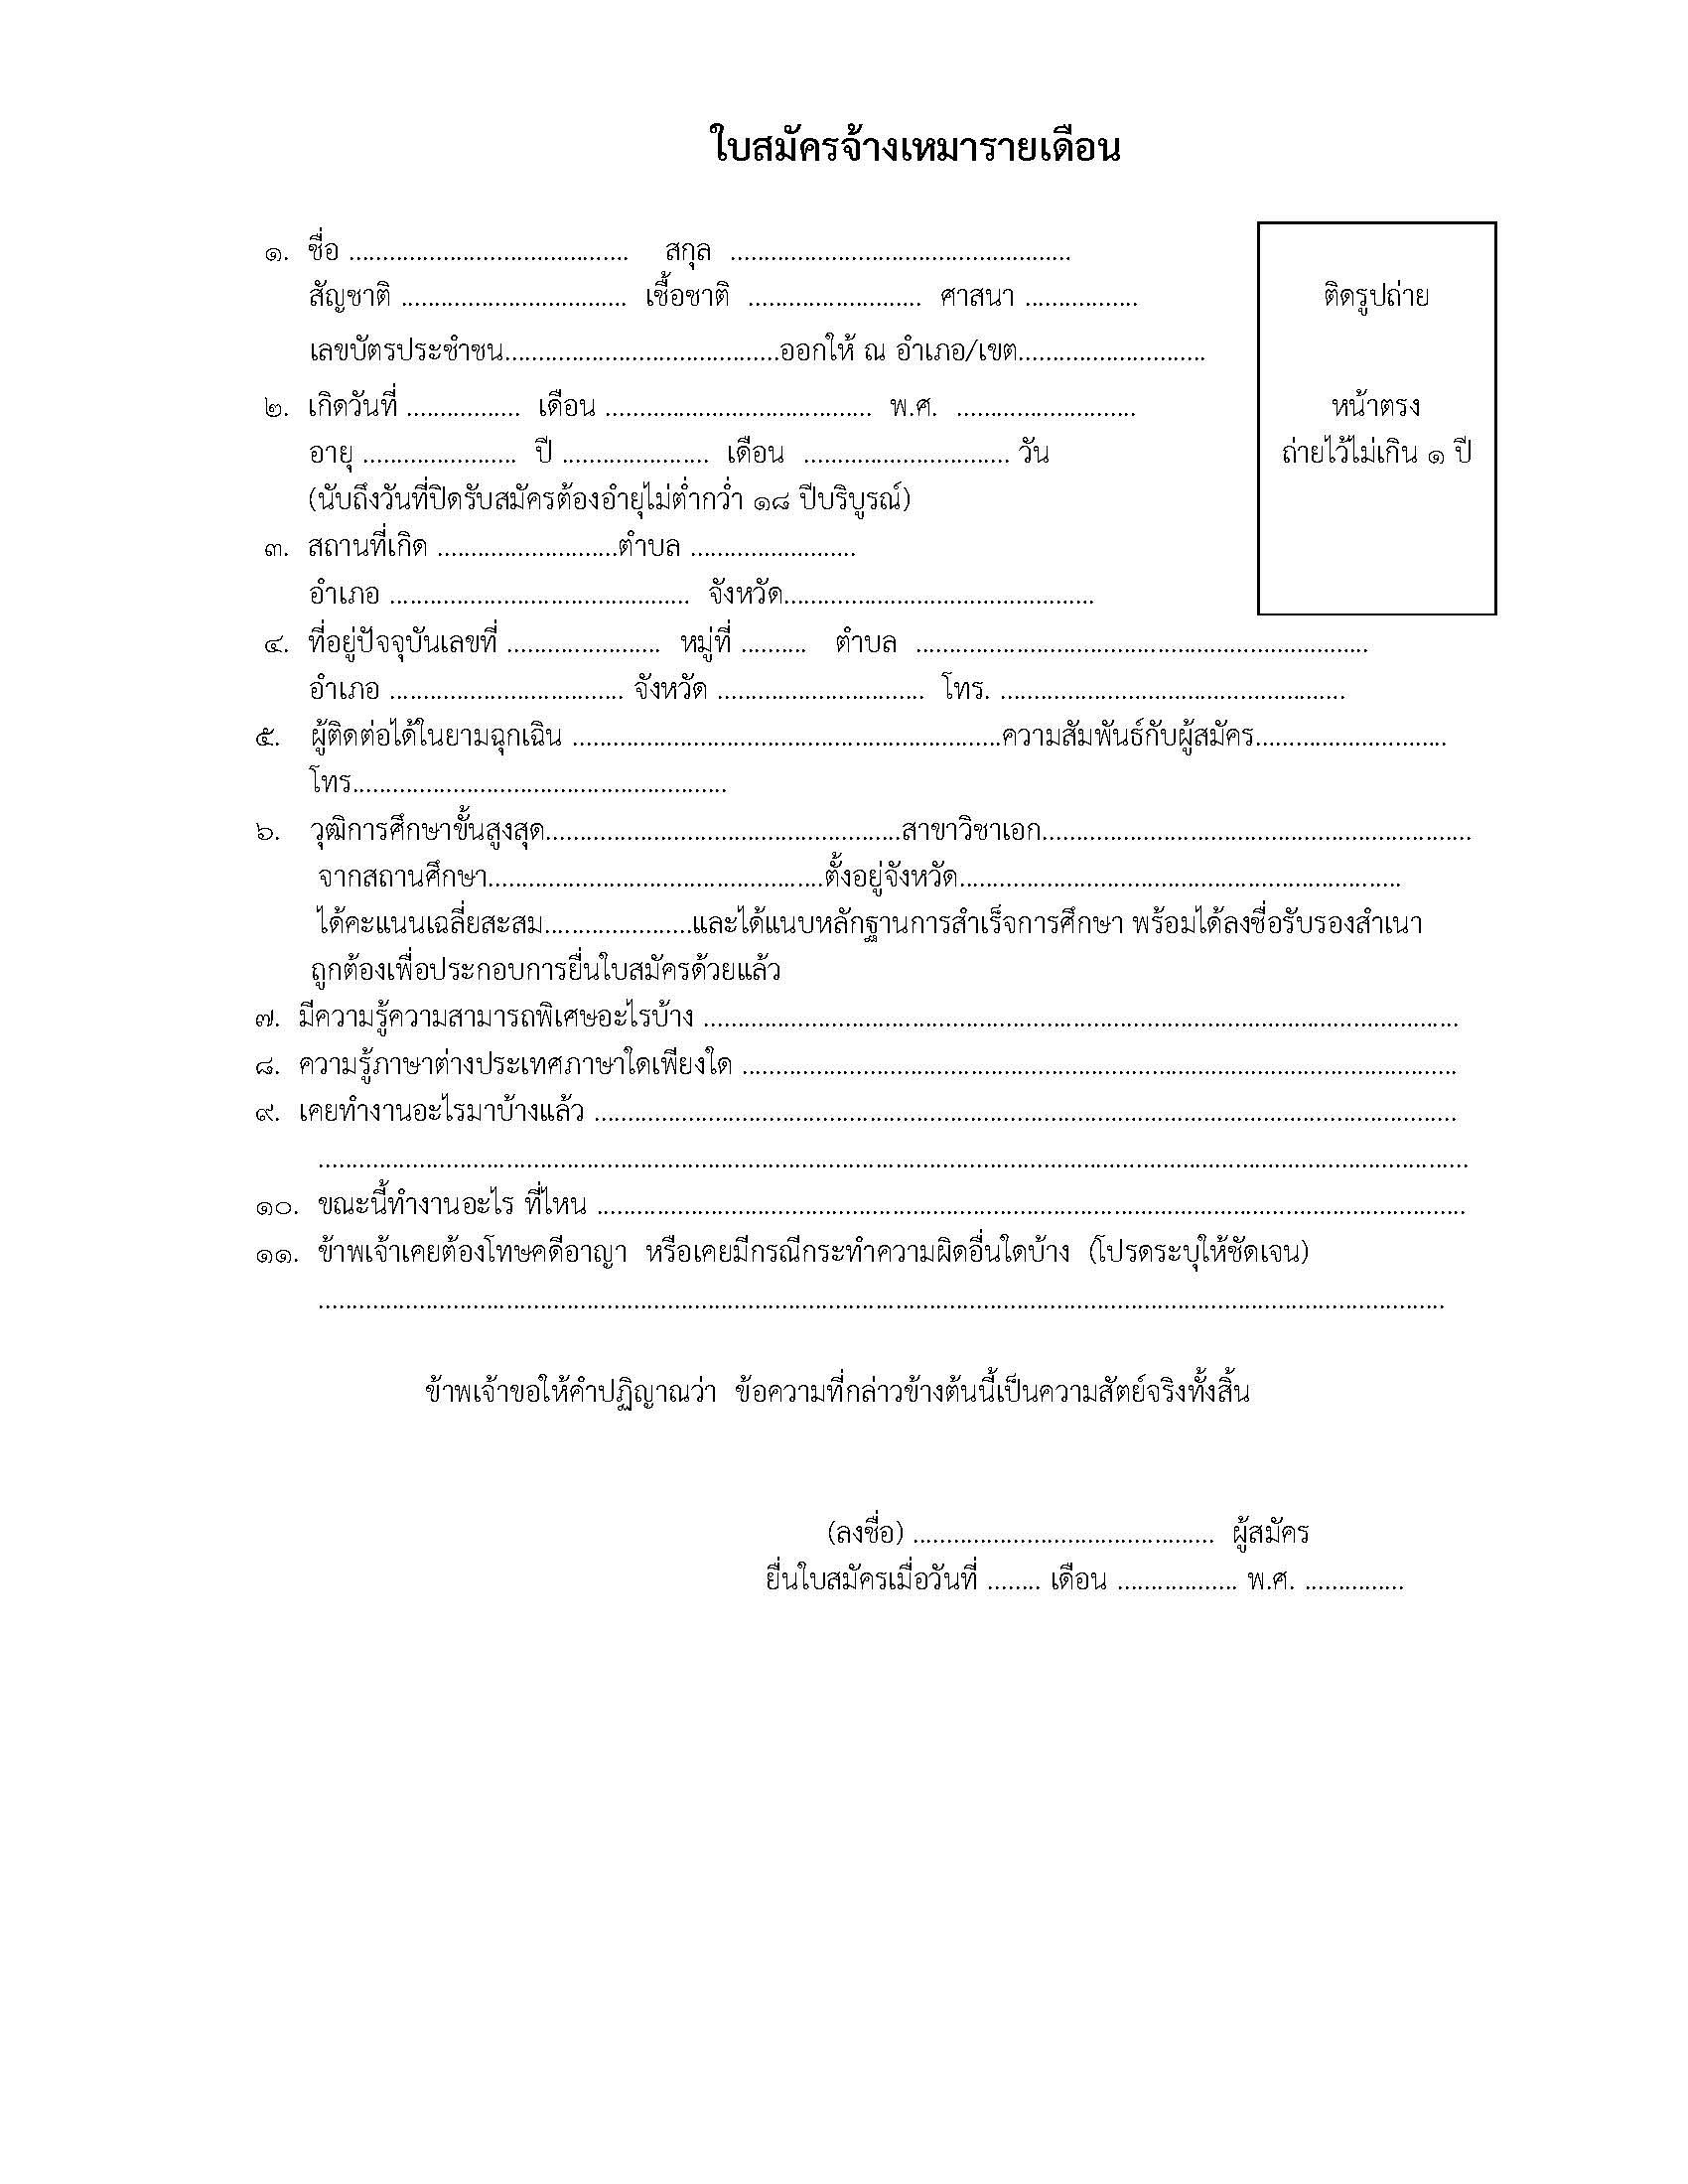 ใบสมัครจ้างเหมารายเดือน
๑. ชื่อ .......................................... สกุล ...................................................
สัญชาติ .................................. เชื้อชาติ .......................... ศาสนา .................
เลขบัตรประชำชน.........................................ออกให้ ณ อำเภอ/เขต............................
ติดรูปถ่าย
หน้าตรง
ถ่ายไว้ไม่เกิน ๑ ปี
๒. เกิดวันที่ ................. เดือน ........................................ พ.ศ. ...........................
อายุ ....................... ปี ...................... เดือน ............................... วัน
(นับถึงวันที่ปิดรับสมัครต้องอำยุไม่ต่ำกว่ำ ๑๘ ปีบริบูรณ์)
๓. สถานที่เกิด ...........................ตำบล .........................
อำเภอ ............................................. จังหวัด...............................................
๔. ที่อยู่ปัจจุบันเลขที่ ....................... หมู่ที่ .......... ตำบล ....................................................................
อำเภอ ................................... จังหวัด ............................... โทร. ....................................................
๕. ผู้ติดต่อได้ในยามฉุกเฉิน ................................................................ความสัมพันธ์กับผู้สมัคร.............................
โทร........................................................
๖. วุฒิการศึกษาขั้นสูงสุด.....................................................สาขาวิชาเอก................................................................
จากสถานศึกษา..................................................ตั้งอยู่จังหวัด..................................................................
ได้คะแนนเฉลี่ยสะสม......................และได้แนบหลักฐานการสำเร็จการศึกษา พร้อมได้ลงชื่อรับรองสำเนา
ถูกต้องเพื่อประกอบการยื่นใบสมัครด้วยแล้ว
๗. มีความรู้ความสามารถพิเศษอะไรบ้าง .................................................................................................................
๘. ความรู้ภาษาต่างประเทศภาษาใดเพียงใด ...........................................................................................................
๙. เคยทำงานอะไรมาบ้างแล้ว .................................................................................................................................
............................................................................................................................................................................
๑๐. ขณะนี้ทำงานอะไร ที่ไหน ..................................................................................................................................
๑๑. ข้าพเจ้าเคยต้องโทษคดีอาญา หรือเคยมีกรณีกระทำความผิดอื่นใดบ้าง (โปรดระบุให้ชัดเจน)
.........................................................................................................................................................................
ข้าพเจ้าขอให้คำปฏิญาณว่า ข้อความที่กล่าวข้างต้นนี้เป็นความสัตย์จริงทั้งสิ้น
(ลงชื่อ) ............................................. ผู้สมัคร
ยื่นใบสมัครเมื่อวันที่ ........ เดือน .................. พ.ศ. ...............